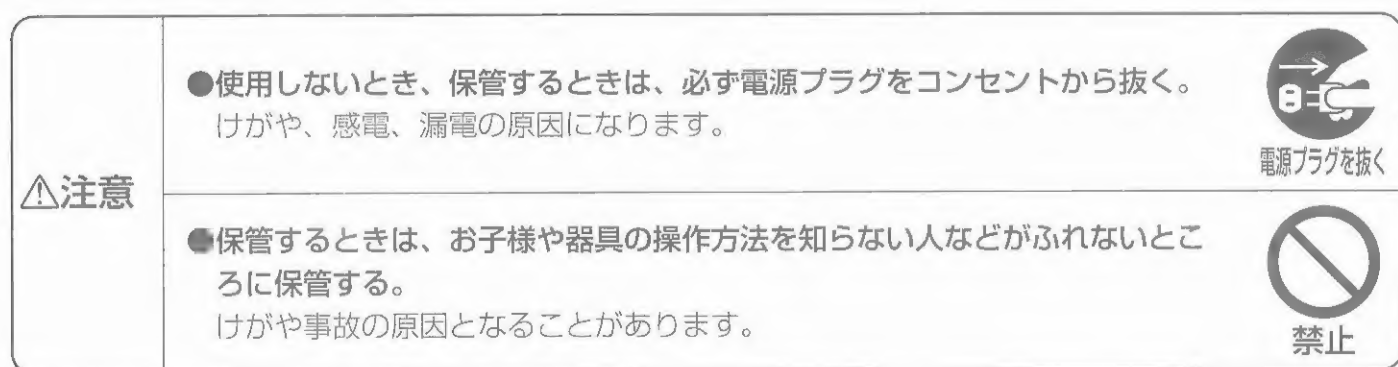 ⚠注意
●使用しないとき、保管するときは、必ず電源プラグをコンセントから抜く。
けがや、感電、漏電の原因になります。
電源プラグを抜く
●保管するときは、お子様や器具の操作方法を知らない人などがふれないとこ
ろに保管する。
けがや事故の原因となることがあります。
禁止